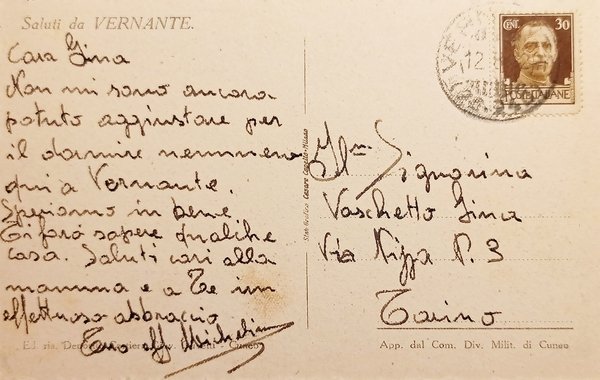 Saluti da VERNANTE.
Cara Gina
Non mi sono ancora
potuto aggiustare per
il dormire nemmeno
qui a Vernante.
Speriamo in bene
Ti farò sapere qualche
cosa. Saluti cari alla
mamma e a Te un
affettuoso abbraccio
Tuo aff
CENT. 30
POSTE ITALIANE
12
Ill.ma Signorina
Vaschetto Gina
Via Nizza N. 3
Torino
App. dal Com. Div. Milit. di Cuneo
Cuneo